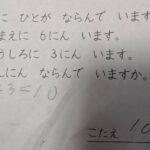 に ひとが ならんで います。
まえに 6にん います。
うしろに 3にん います。
んにん ならんで いますか。
+3=10
こたえ 10